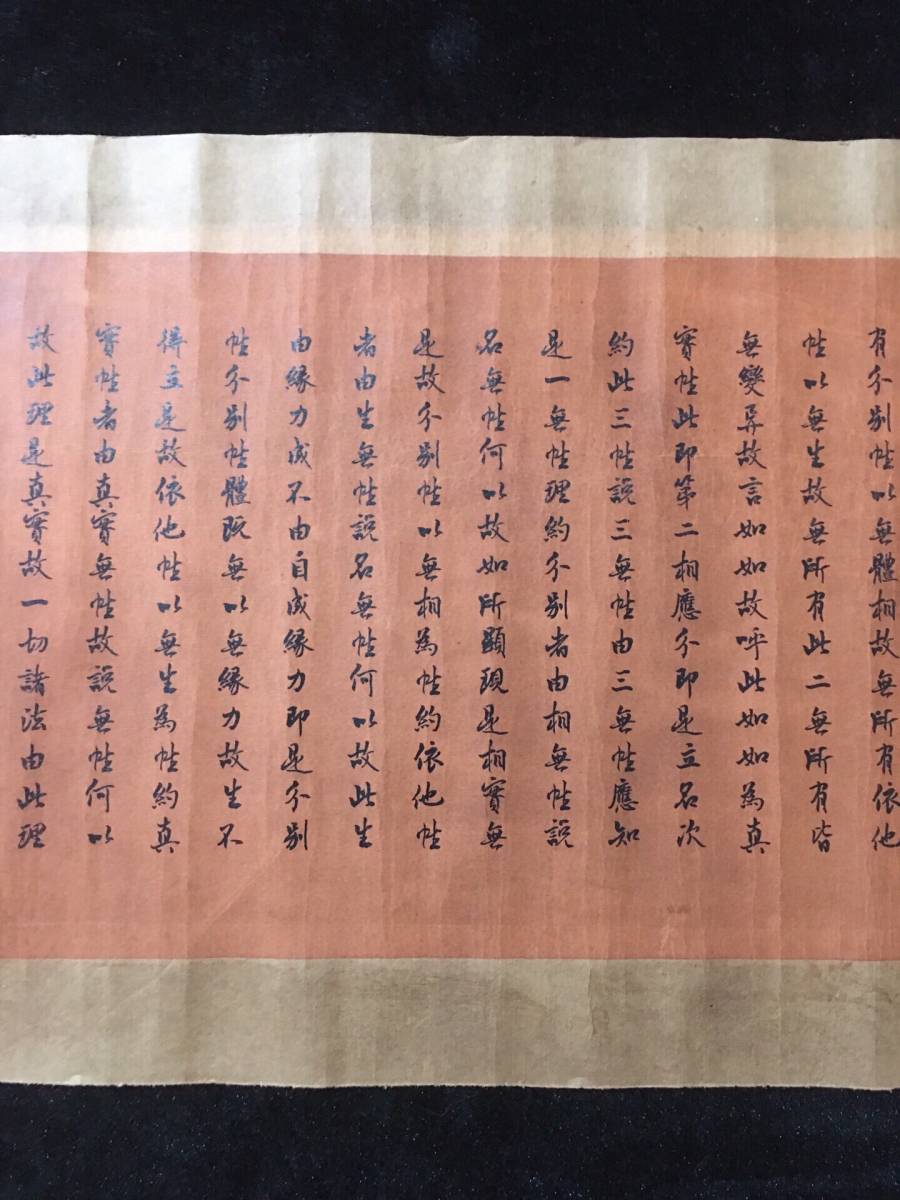 有分別性以無體相故無所有依他
性以無生故無所有此二無所有皆
無變異故言如如故呼此如如為真
實性此即第二相應分即是立名次
約此三性說三無性由三無性應知
是一無性理約分別者由相無性說
名無性何以故如所顯現是相實無
是故分別性以無相為性約依他性
者由生無性說名無性何以故此生
由緣力成不由自成緣力即是分別
性分別性體既無以無緣力故生不
得立是故依他性以無生為性約真
實性者由真實無性故說無性何以
故此理是真實故一切諸法由此理